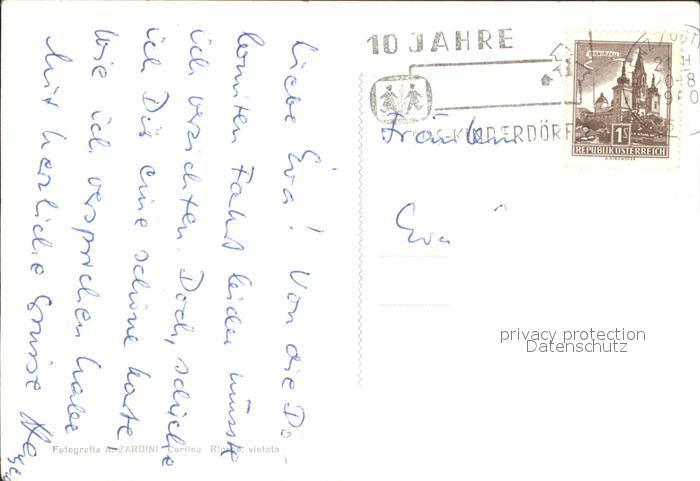 Liebe Eva! Von die Do-
lomiten Fahrt leider müsste
ich verzichten. Doch, schicke
ich Dir eine schöne Karte,
wie ich versprochen habe
Mit herzliche Grüsse
10 JAHRE
KINDERDÖRF
MARIAZELL
1S
REPUBLIK ÖSTERREICH
Fräulein
Eva
privacy protection
Datenschutz
Fotografia A. ZARDINI Cortina Ripr. vietata